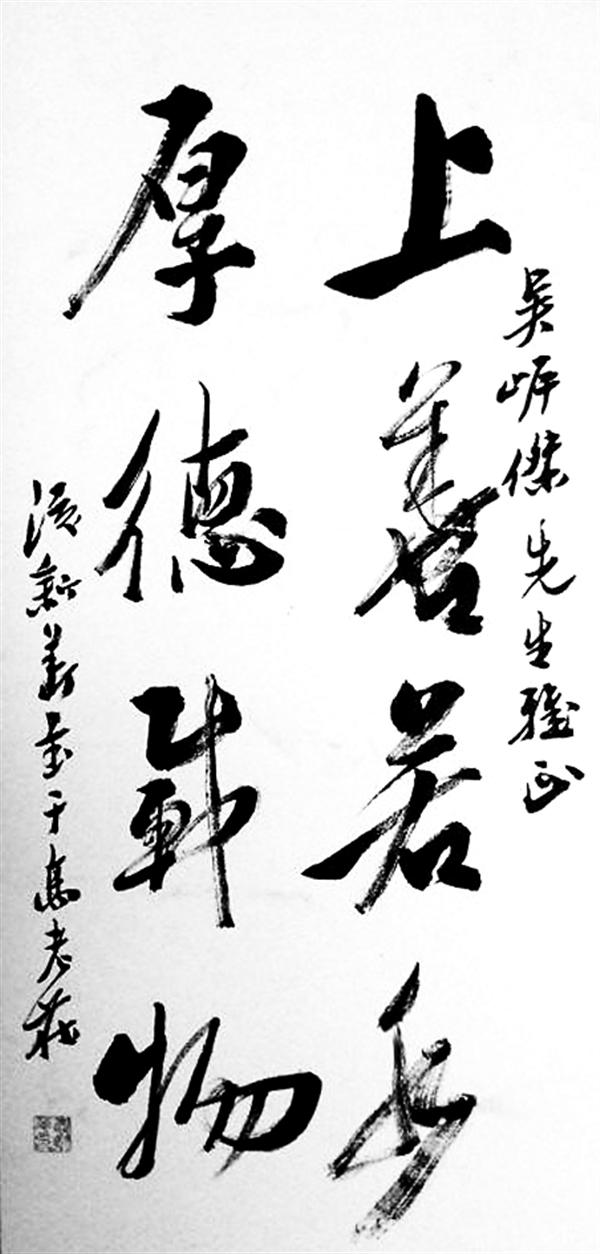 吴岍傑先生雅正
上善若水
厚德载物
新义书于 老莊